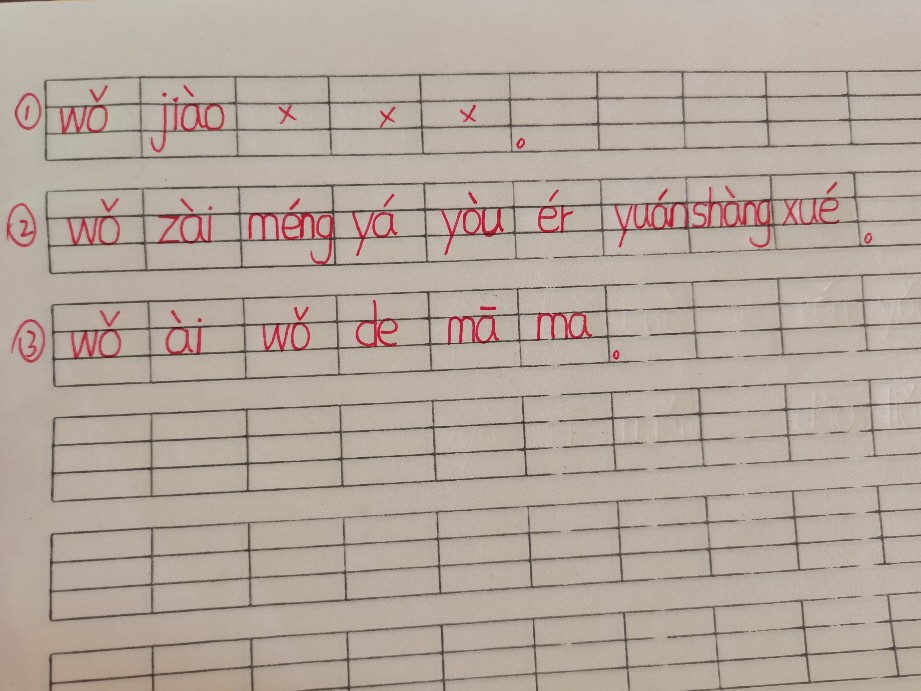 ① wǒ jiào × × × 。
② wǒ zài méng yá yòu ér yuán shàng xué 。
③ wǒ ài wǒ de mā ma 。